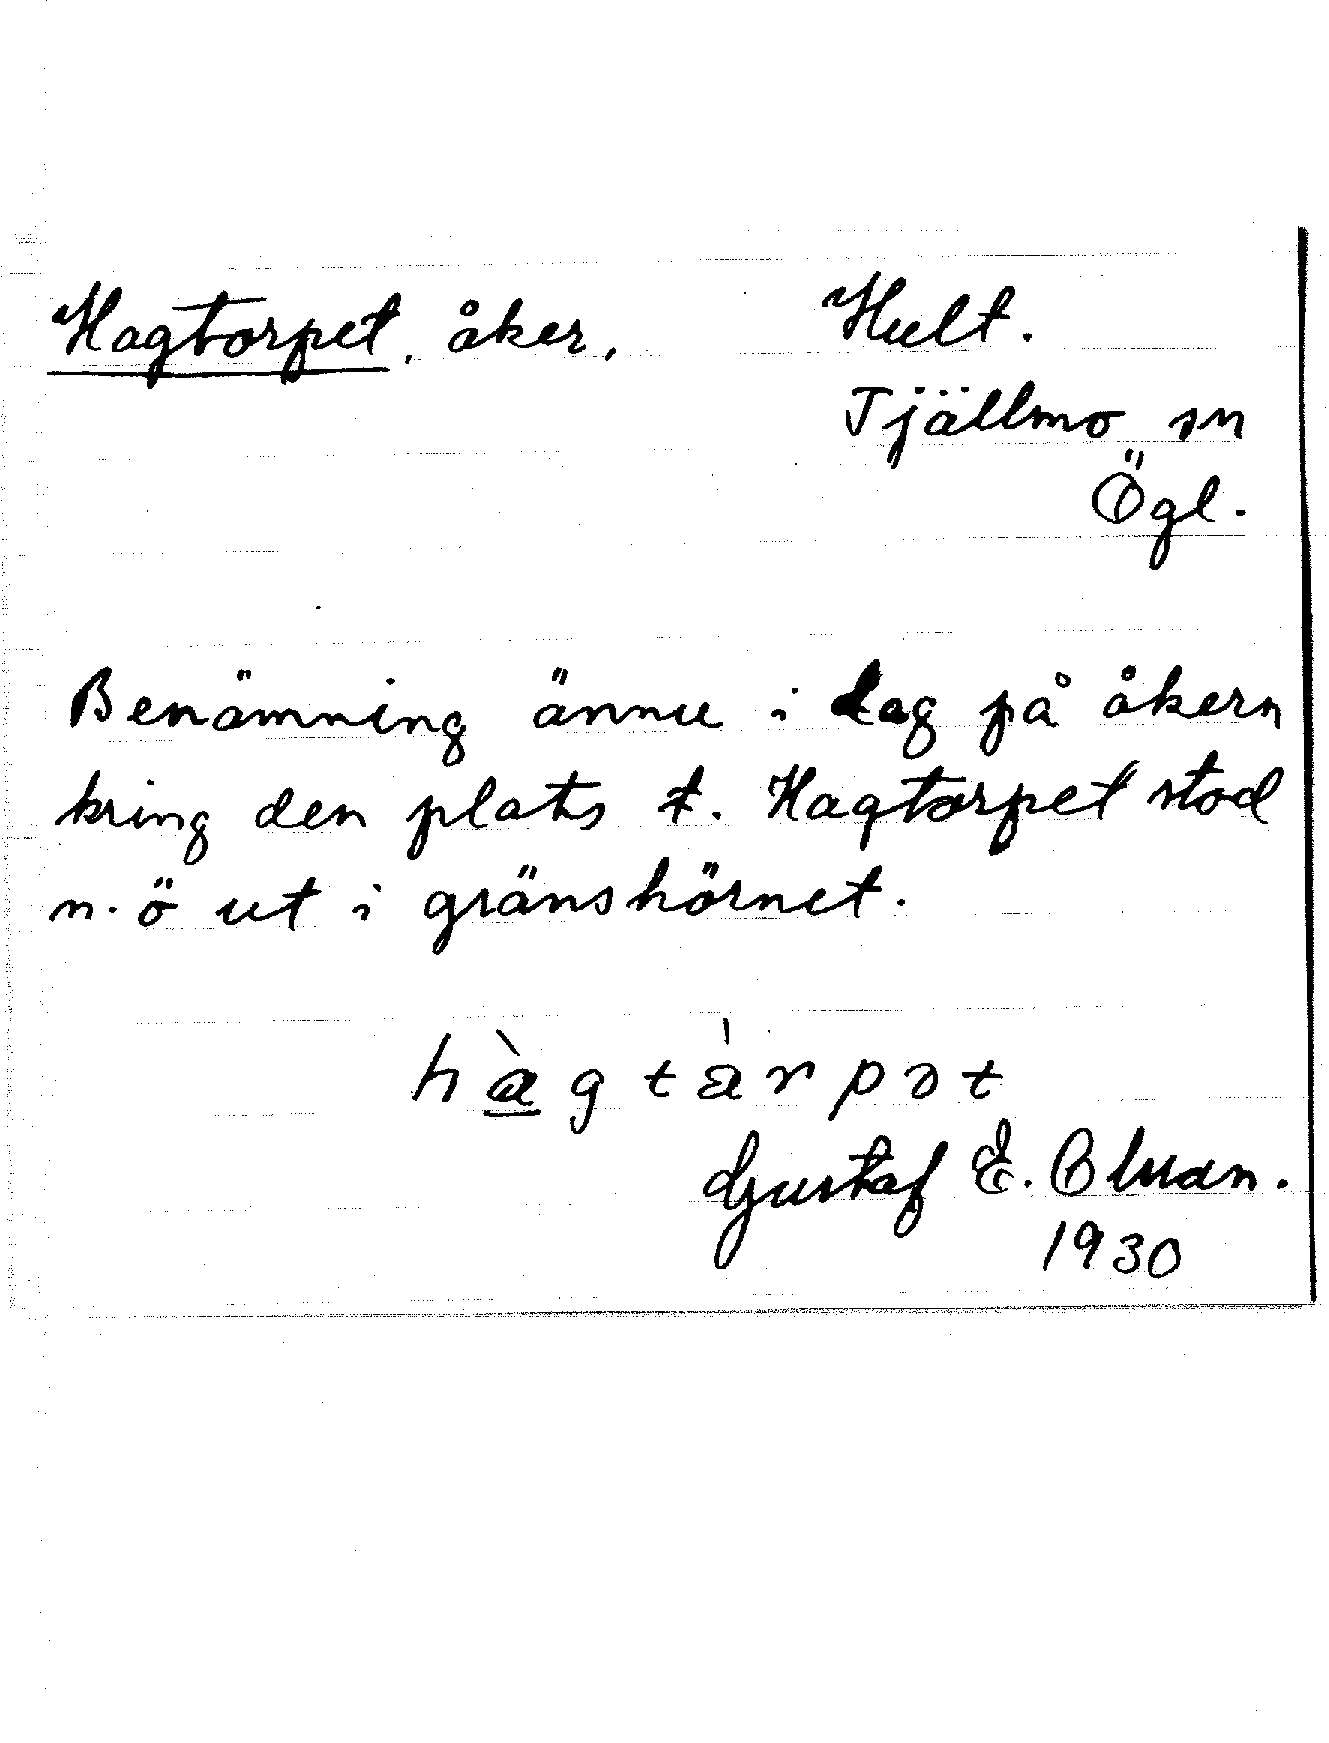 Hagtorpet, åker, Hult.
Tjällmo sn
Ögl.
Benämning ännu i dag på åkern
kring den plats t. Hagtorpet stod
n.ö ut i gränshörnet.
hàgtàrpət
Gustaf E.
1930